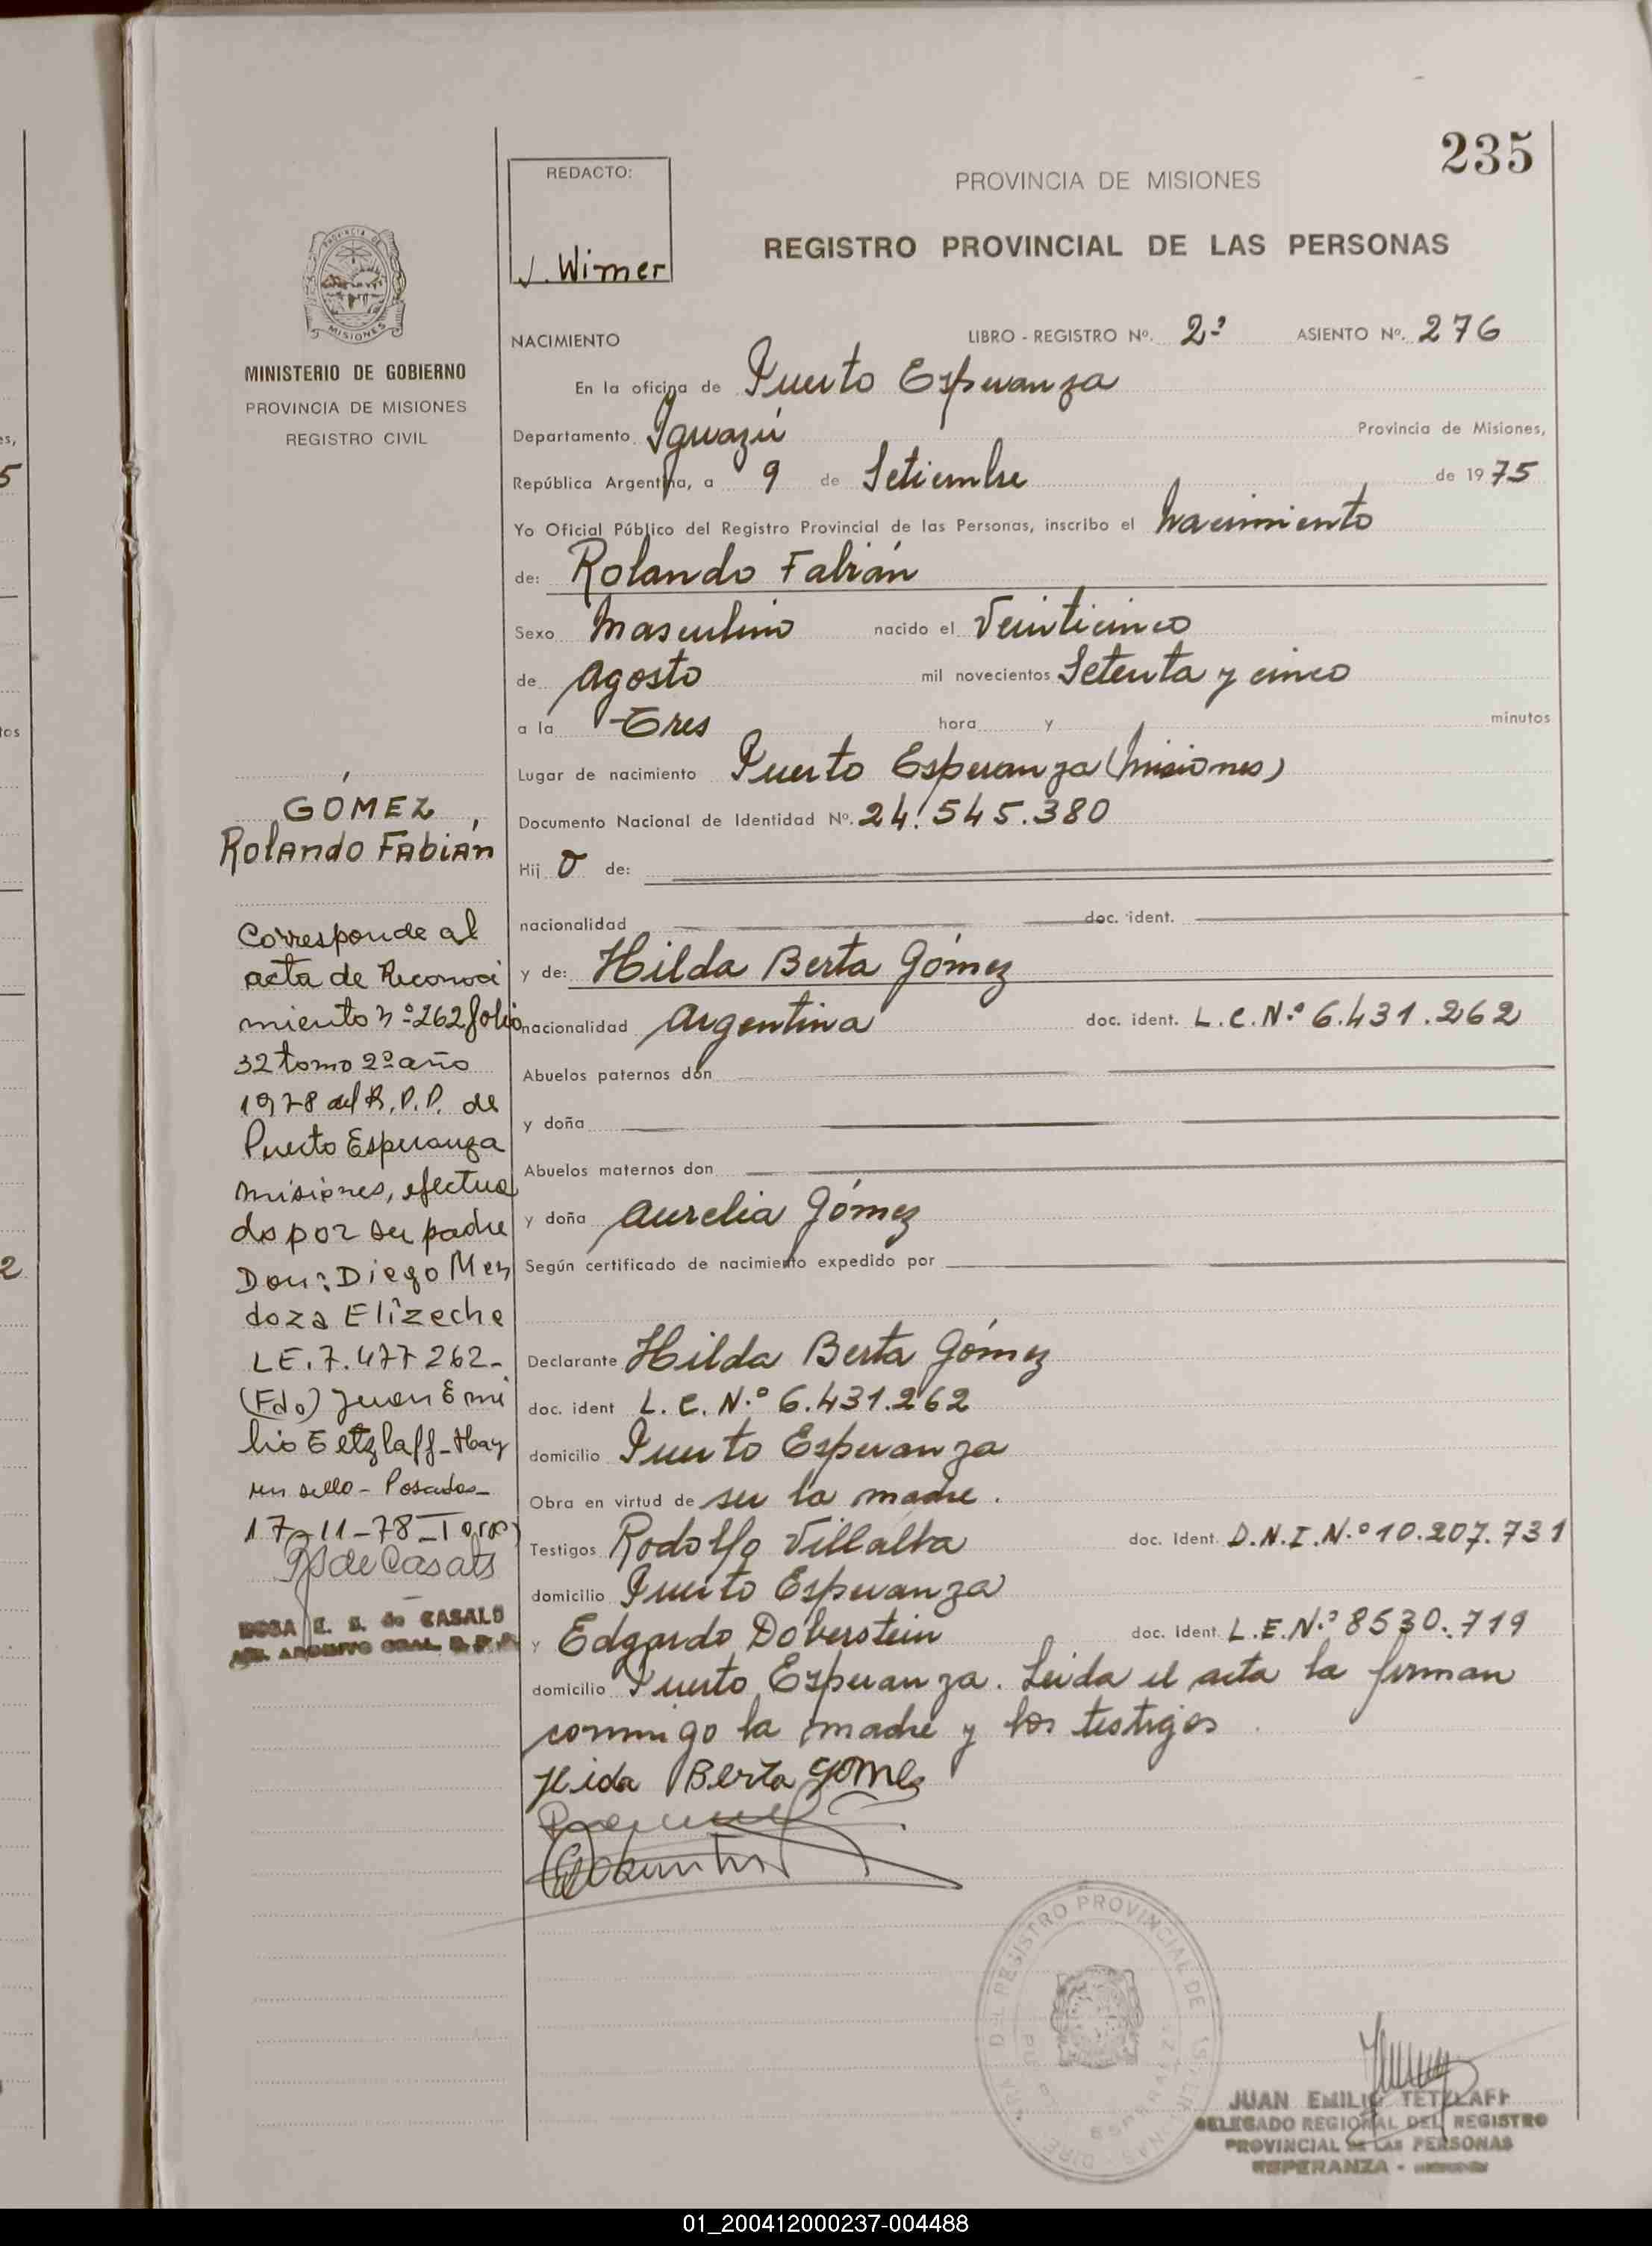 235
REDACTO:
J. Wimer
PROVINCIA DE MISIONES
REGISTRO PROVINCIAL DE LAS PERSONAS
PROVINCIA DE
MISIONES
MINISTERIO DE GOBIERNO
PROVINCIA DE MISIONES
REGISTRO CIVIL
NACIMIENTO LIBRO - REGISTRO Nº. 2º ASIENTO Nº. 276
En la oficina de Puerto Esperanza
Departamento Iguazú Provincia de Misiones,
República Argentina, a 9 de Setiembre de 1975
Yo Oficial Público del Registro Provincial de las Personas, inscribo el Nacimiento
de: Rolando Fabián
Sexo Masculino nacido el Veinticinco
de Agosto mil novecientos Setenta y cinco
a la Tres hora y minutos
Lugar de nacimiento Puerto Esperanza (Misiones)
Documento Nacional de Identidad Nº. 24.545.380
Hij o de:
nacionalidad doc. ident.
y de: Hilda Berta Gómez
nacionalidad Argentina doc. ident. L.C.N.º 6.431.262
Abuelos paternos don
y doña
Abuelos maternos don
y doña Aurelia Gómez
Según certificado de nacimiento expedido por
Declarante Hilda Berta Gómez
doc. ident L.C.N.º 6.431.262
domicilio Puerto Esperanza
Obra en virtud de ser la madre.
Testigos Rodolfo Villalba doc. Ident. D.N.I.N.º 10.207.731
domicilio Puerto Esperanza
y Edgardo Doberstein doc. Ident. L.E.N.º 8530.719
domicilio Puerto Esperanza. Leida el acta la firman
conmigo la madre y los testigos
Hida Berta Gomez
GÓMEZ,
Rolando Fabián
Corresponde al
acta de Reconoci
miento nº 262 folio
32 tomo 2º año
1978 del R.P.P. de
Puerto Esperanza
Misiones, efectua
do por su padre
Don: Diego Men
doza Elizeche
LE.7.477262-
(Fdo) Juan Emi
lio Tetzlaff-Hay
un sello- Posadas-
17-11-78-
de Casals
ROSA E. S. de CASALS
ARCHIVO GRAL. R. P. P.
REGISTRO PROVINCIAL DE
JUAN EMILIO TETZLAFF
DELEGADO REGIONAL DEL REGISTRO
PROVINCIAL DE LAS PERSONAS
ESPERANZA -
5
2
01_200412000237-004488